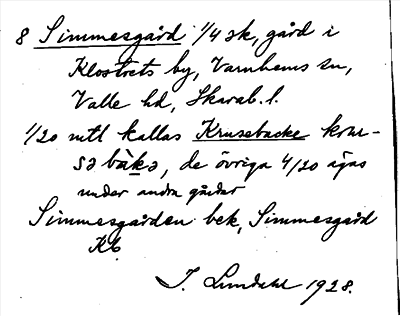 8 Simmesgård 1/4 sk, gård i
Klostrets by, Varnhems sn,
Valle hd, Skarab. l.
1/20 mtl kallas Krusebacke krʉ-
sə bàkə, de övriga 4/20 ägas
under andra gårdar
Simmesgården bek, Simmesgård
Kb.
I. Lundahl 1928.